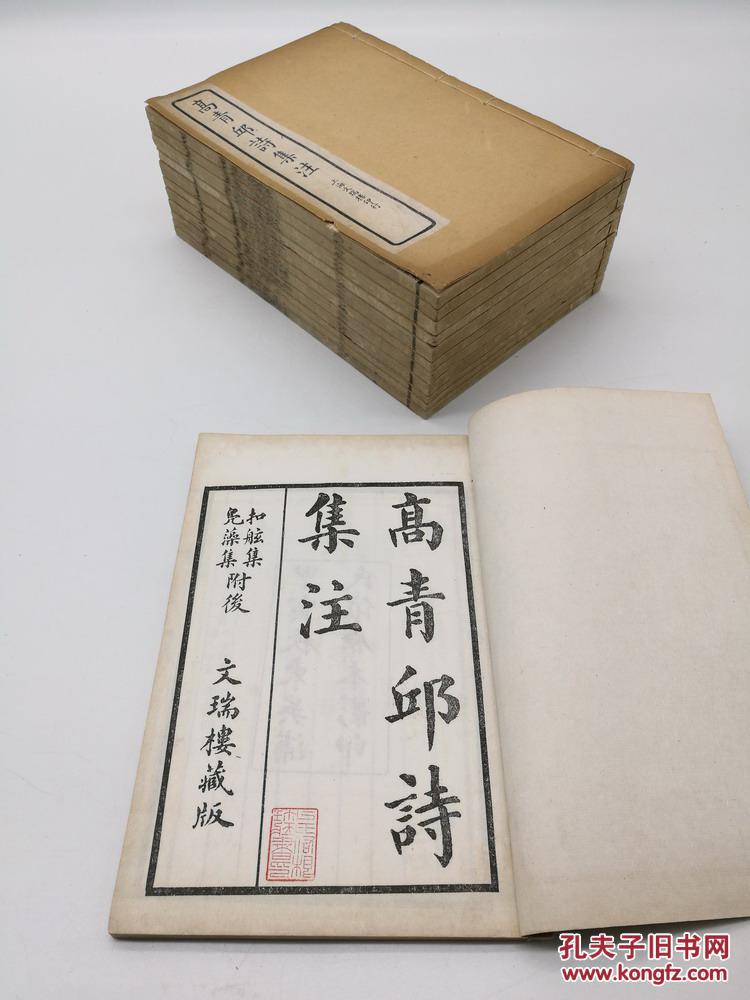 高青邱詩集注
上海文瑞樓印行
高青邱詩
集注
扣舷集
鳧藻集附後
文瑞樓藏版
孔夫子旧书网
www.kongfz.com